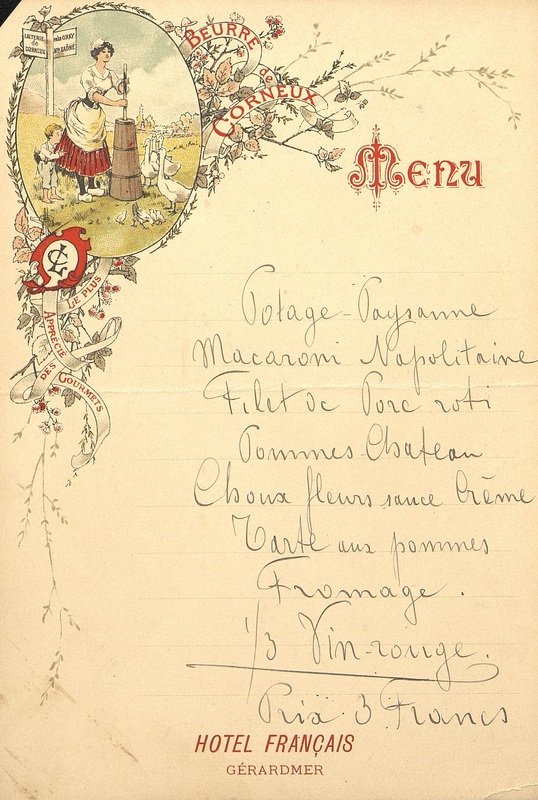 LAITERIE de CORNEUX
près GRAY Hte SAÔNE
BEURRE
de
CORNEUX
MENU
LE PLUS
APPRÉCIÉ
DES GOURMETS
Potage-Paysanne
Macaroni Napolitaine
Filet de Porc roti
Pommes-Chateau
Choux fleurs sauce Crème
Tarte aux pommes
Fromage.
1/3 Vin-rouge.
Prix 3 Francs
HOTEL FRANÇAIS
GÉRARDMER